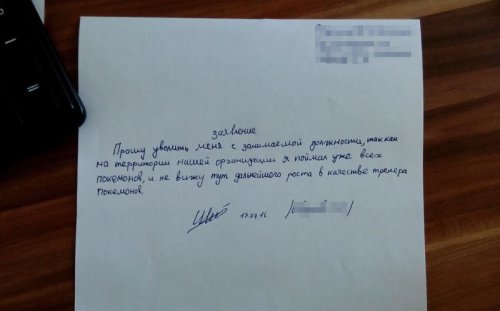 заявление
Прошу уволить меня с занимаемой должности, так как
на территории нашей организации я поймал уже всех
покемонов, и не вижу тут дальнейшего роста в качестве тренера
покемонов.
17.07.16